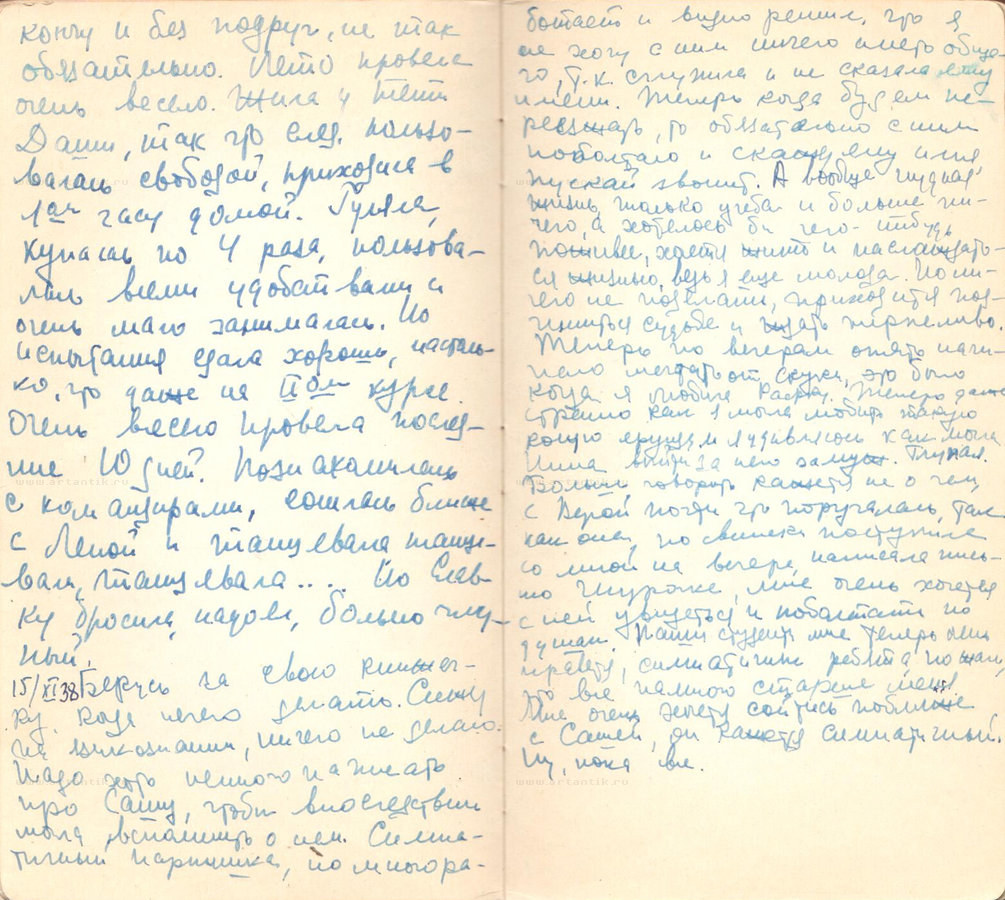 кончу и без подруг, не так
обязательно. Лето провела
очень весело. Жила у тети
Даши, так что след. пользо-
валась свободой, приходила в
1ом часу домой. Гуляла,
купалась по 4 раза, пользова-
лась всеми удобствами и
очень мало занималась. Но
испытания сдала хорошо, насколь-
ко, что даже на IIом курсе.
Очень весело провела послед-
ние 10 дней. Познакомилась
с командирами, сошлась ближе
с Леной и танцевала танце-
вала, танцевала... Но Слав-
ку бросила, надоел, больно
ный.
15/XI 38 Берусь за свою книжеч-
ку, когда нечего делать. Сижу
на языкознании, ничего не делаю.
Надо хоть немного написать
про Сашу, чтобы впоследствии
могла вспомнить о нем. Симпа-
тичный парнишка, но много ра-
ботает и видно решил, что я
не хочу с ним ничего иметь обще-
го, т.к. и не сказала ему
имени. Теперь когда будем пе-
реезжать, то обязательно с ним
поболтаю и скажу ему имя
пускай звонит. А вообще нудная
жизнь, только учеба и больше ни-
чего, а хотелось бы чего-нибудь
поживее, хочется жить и наслаждать-
ся жизнью, ведь я еще молода. Но ни-
чего не поделаешь, приходится под-
чиниться судьбе и ждать терпеливо.
Теперь по вечерам опять начи-
наю мечтать от скуки, это было
когда я любила Теперь даже
странно как я могла любить такую
и удивляюсь как могла
Нина выйти за него замуж. Глупая.
Больше говорить кажется не о чем,
с Верой почти что поругалась, так
как она, по свински поступила
со мной на вечере, написала пись-
мо Шурочке, мне очень хочется
с ней увидеться и поболтать по
душам. Наши студенты мне теперь очень
нравятся, симпатичные ребята но жаль,
что все намного старше меня.
Мне очень хочется сойтись поближе
с Сашей, он кажется симпатичный.
Ну, пока все.
www.artantik.ru